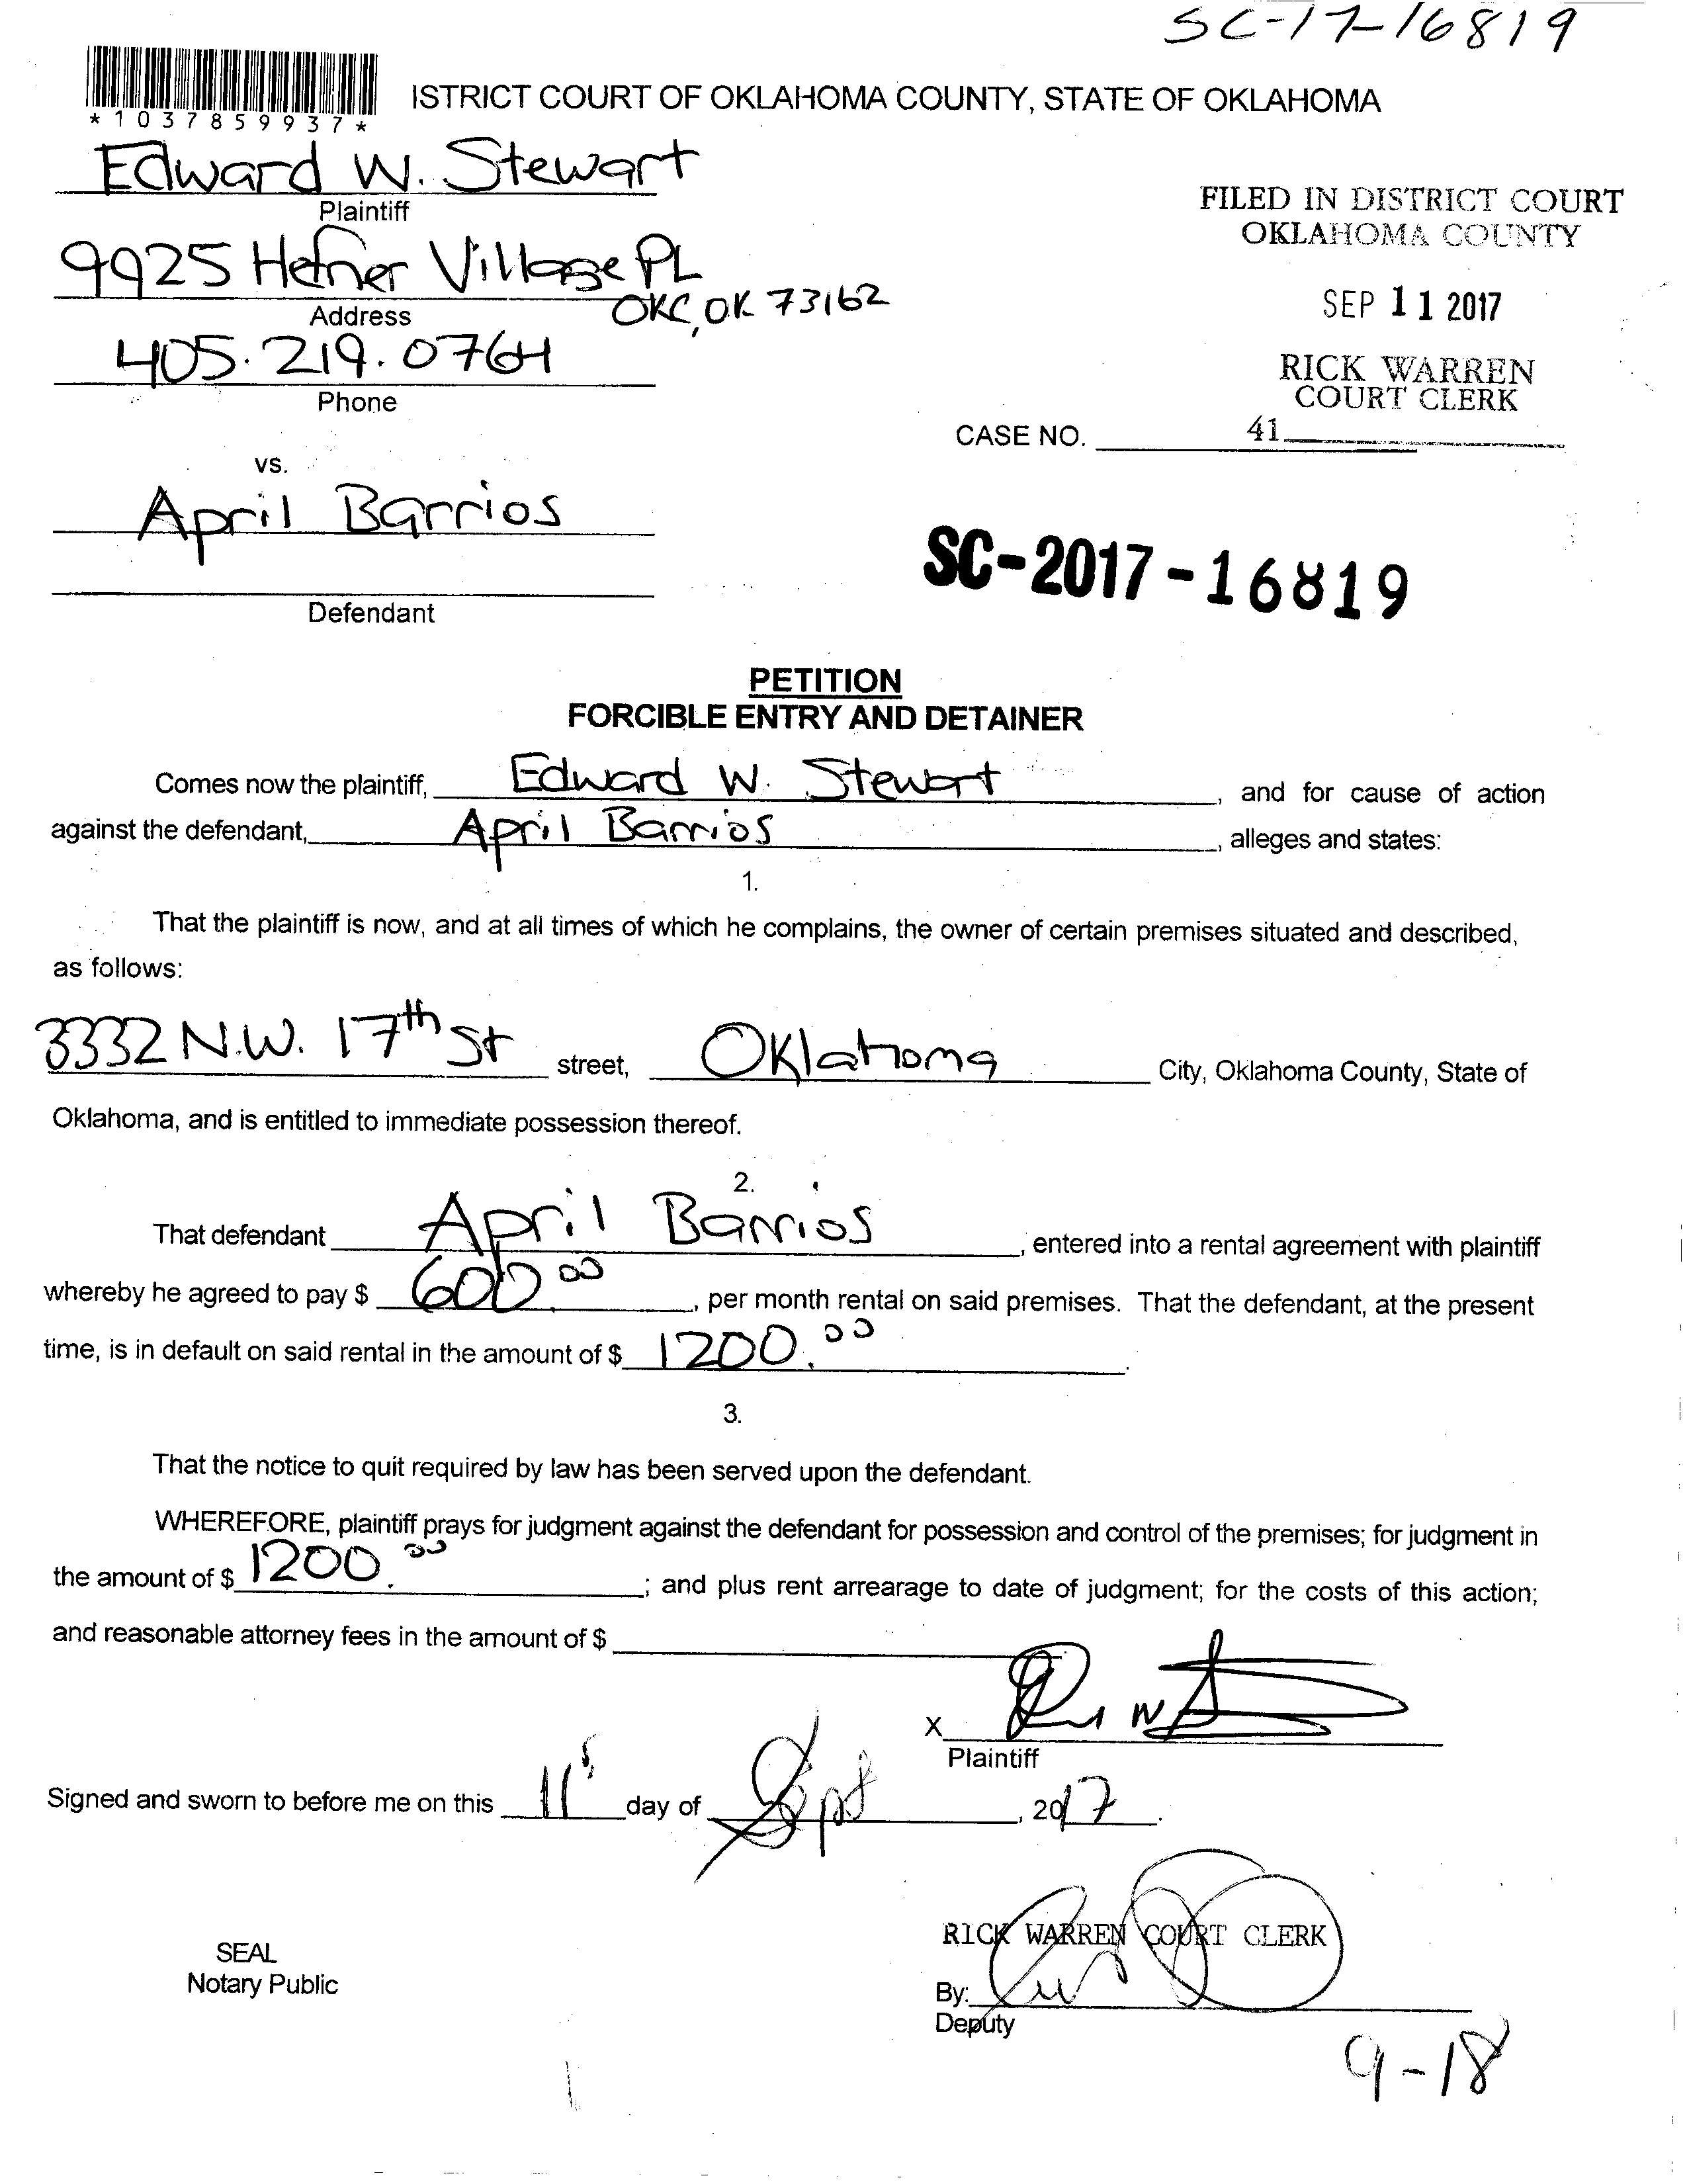 SC-17-16819
*1037859937*
ISTRICT COURT OF OKLAHOMA COUNTY, STATE OF OKLAHOMA
Edward W. Stewart
Plaintiff
FILED IN DISTRICT COURT
OKLAHOMA COUNTY
9925 Hefner Village PL
OKC, OK 73162
Address
SEP 11 2017
405.219.0764
Phone
RICK WARREN
COURT CLERK
CASE NO. 41
vs.
April Barrios
SC-2017-16819
Defendant
PETITION
FORCIBLE ENTRY AND DETAINER
Comes now the plaintiff, Edward W. Stewart, and for cause of action
against the defendant, April Barrios, alleges and states:
1.
That the plaintiff is now, and at all times of which he complains, the owner of certain premises situated and described,
as follows:
3332 N.W. 17th St street, Oklahoma City, Oklahoma County, State of
Oklahoma, and is entitled to immediate possession thereof.
2.
That defendant April Barrios, entered into a rental agreement with plaintiff
whereby he agreed to pay $ 600.00, per month rental on said premises. That the defendant, at the present
time, is in default on said rental in the amount of $ 1200.00.
3.
That the notice to quit required by law has been served upon the defendant.
WHEREFORE, plaintiff prays for judgment against the defendant for possession and control of the premises; for judgment in
the amount of $ 1200.00; and plus rent arrearage to date of judgment; for the costs of this action;
and reasonable attorney fees in the amount of $
X
Plaintiff
Signed and sworn to before me on this 11 day of Sept, 2017.
RICK WARREN COURT CLERK
SEAL
Notary Public
By:
Deputy
9-18